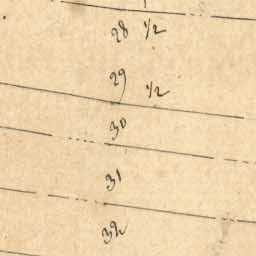 28 1/2
29
1/2
30
31
32